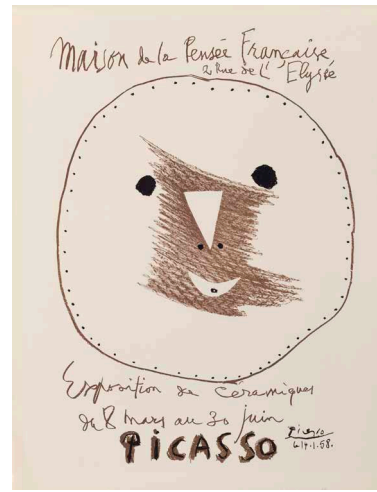 Maison de la Pensée Française
2 Rue de L'Elysée
Exposition de céramiques
du 8 mars au 30 juin
PICASSO
Picasso
14.1.58.